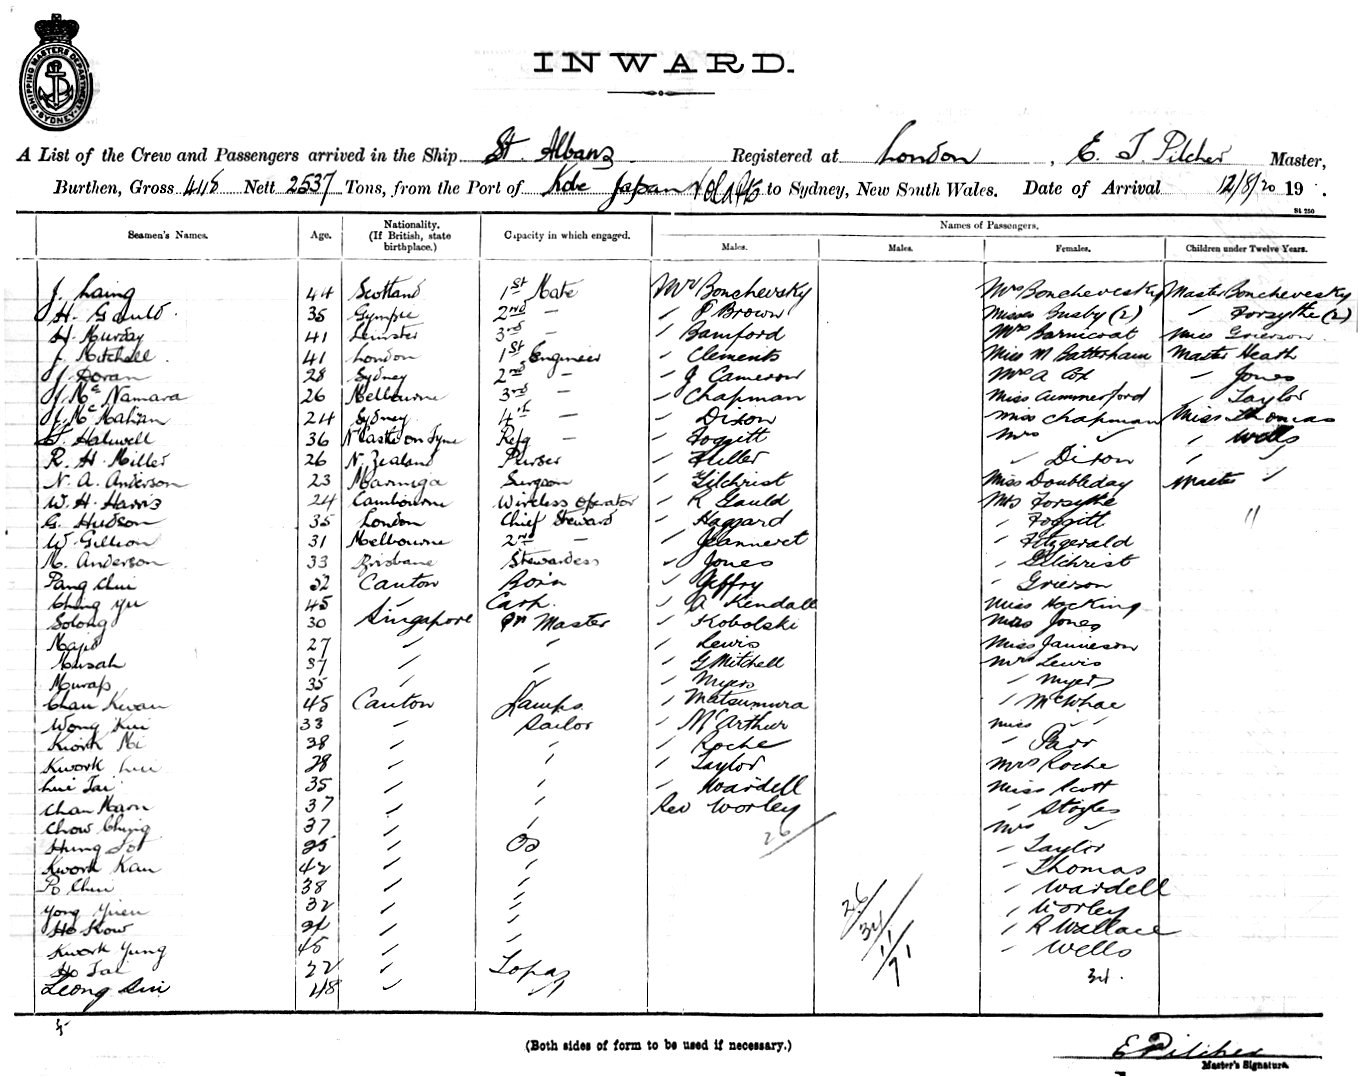 SHIPPING MASTERS DEPARTMENT SYDNEY
INWARD.
A List of the Crew and Passengers arrived in the Ship St. Albans Registered at London, E. T. Pilcher Master,
Burthen, Gross Nett 2537 Tons, from the Port of Kobe Japan to Sydney, New South Wales. Date of Arrival 12/8/20 19 .
S4 250
Seamen's Names. Age. Nationality. (If British, state birthplace.) Capacity in which engaged. Names of Passengers.
Males. Males. Females. Children under Twelve Years.
J. Laing 44 Scotland 1st Mate Mr Bonchevsky Mrs Bonchevesky Master Bonchevesky
H. Gauld. 35 Gympie 2nd — " P Brown Misses Busby (2) " Forsythe (2)
H. Murday 41 Leinster 3rd — " Bamford Mrs Barnicoat Miss Grierson
J. Mitchell. 41 London 1st Engineer " Clements Miss M Battsham Master Heath
J. Doran 28 Sydney 2nd — " J Cameron Mrs A Cox " Jones
J. McNamara 26 Melbourne 3rd — " Chapman Miss Cummerford " Taylor
J. McMahan 24 Sydney 4th — " Dixon Miss Chapman Miss Thomas
T. Haliwell 36 N'Castle on Tyne Refg — " Foggitt Mrs " " Wells
R. H. Miller 26 N Zealand Purser " Fuller " Dixon " "
N. A. Anderson 23 Surgeon " Gilchrist Miss Doubleday Master "
W. H. Harris 24 Cambourne Wireless Operator " R Gauld Mrs Forsythe
G. Hudson 35 London Chief Steward " Haggard " Foggitt 11
W. Gillion 31 Melbourne 2nd — " Jeanneret " Fitzgerald
M. Anderson 33 Brisbane Stewardess " Jones " Gilchrist
Pang Chui 52 Canton Bosn " Jeffry " Grieson
Ching Yu 45 " Carp. " A Kendall Miss Hocking
Solong 30 Singapore Qr Master " Kobolski Miss Jones
Majid 27 " " " Lewis Miss Jamieson
Musah 37 " " " G Mitchell Mrs Lewis
Murap 35 " " " Myers " Myers
Chan Kwan 45 Canton Lamps " Matsumura " McWhae
Wong Kui 33 " Sailor " McArthur Miss " "
Kwork Mi 38 " " " Roche " Parr
Kwork Lui 28 " " " Taylor Mrs Roche
Lui Tai 35 " " " Wardell Miss Scott
Chan Mam 37 " " Rev Worley " Stoyles
Chow Ching 37 " " 26 Mrs "
Hung Tot 25 " OS " Taylor
Kwork Kau 42 " " " Thomas
Po Chui 38 " " " Wardell
Yong Yuen 32 " " 26 " Worley
Ho Kow 24 " " 34 " R Wallace
Kwork Yung 45 " " 11 " Wells
Ho Tai 22 " Topas 71 34.
Leong Sui 48 " "
(Both sides of form to be used if necessary.)
E Pilcher
Master's Signature.